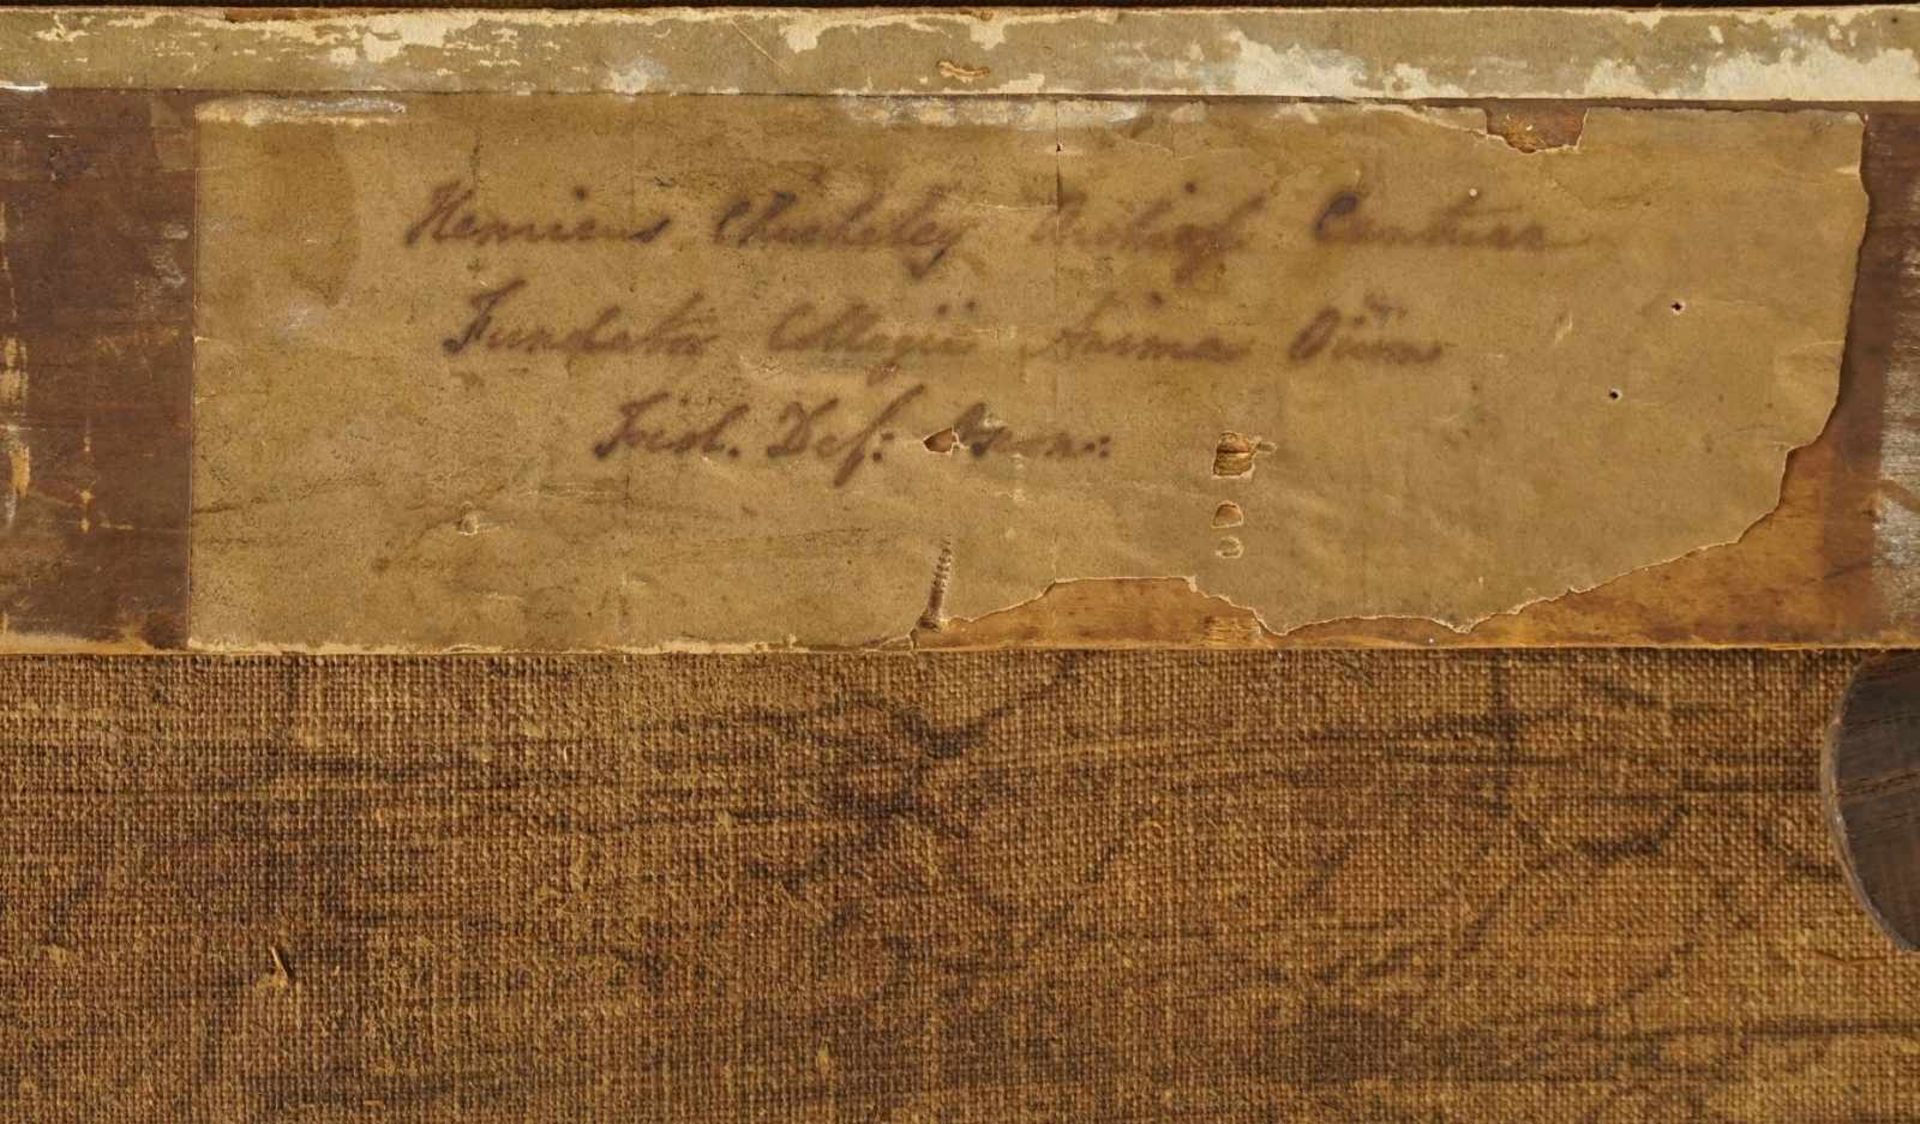 Henricus Chicheley Archiepl. Cantuar
Fundator Collegii Anima Oiūm
Fid. Def: Oxon: